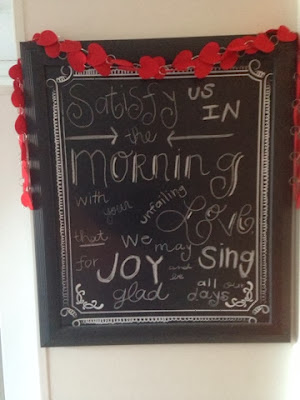 Satisfy US IN
the
MORNING
with your unfailing Love
that we may Sing
for JOY and be
glad all our days